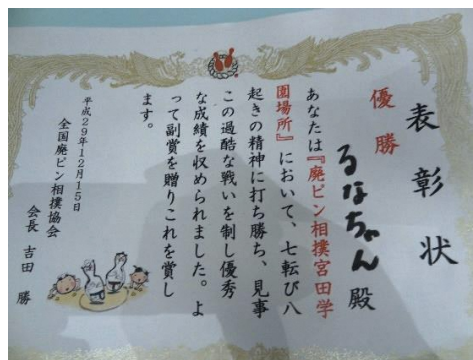 表彰状
優勝
るなちゃん 殿
あなたは『廃ピン相撲宮田学
園場所』において、七転び八
起きの精神に打ち勝ち、見事
この過酷な戦いを制し優秀
な成績を収められました。よ
って副賞を贈りこれを賞し
ます。
平成29年12月15日
全国廃ピン相撲協会
会長 吉田 勝